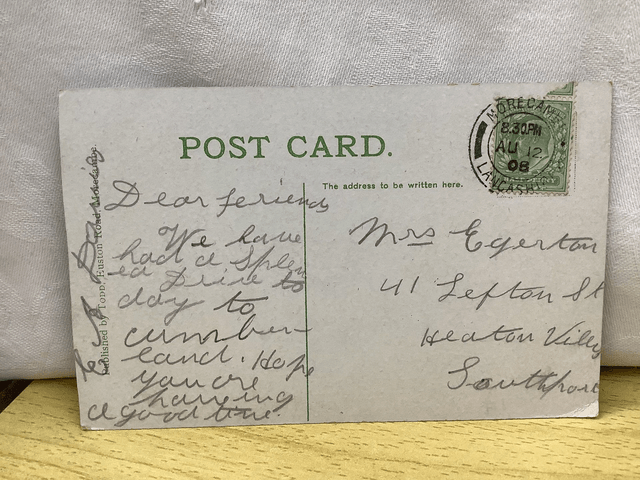 POST CARD.
The address to be written here.
MORECAMBE
8.30PM
AU 12
08
LANCASHIRE
Dear feriends
We have
had a splen
ed Drive to
day to
cumber-
land. Hope
you are
having
a good time
Mrs Egerton
41 Lefton St
Heaton Villy
Southport
Published by Topp, Euston Road, Morecambe.